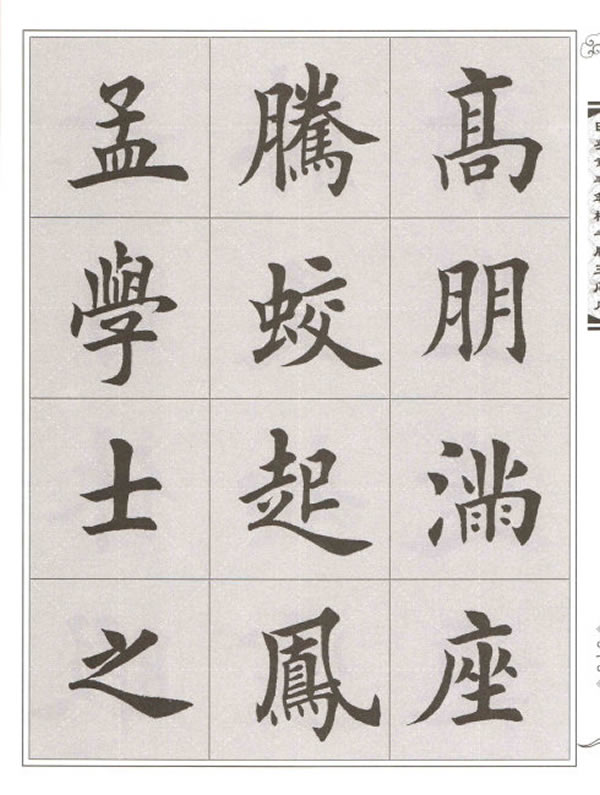 高朋滿座
騰蛟起鳳
孟學士之